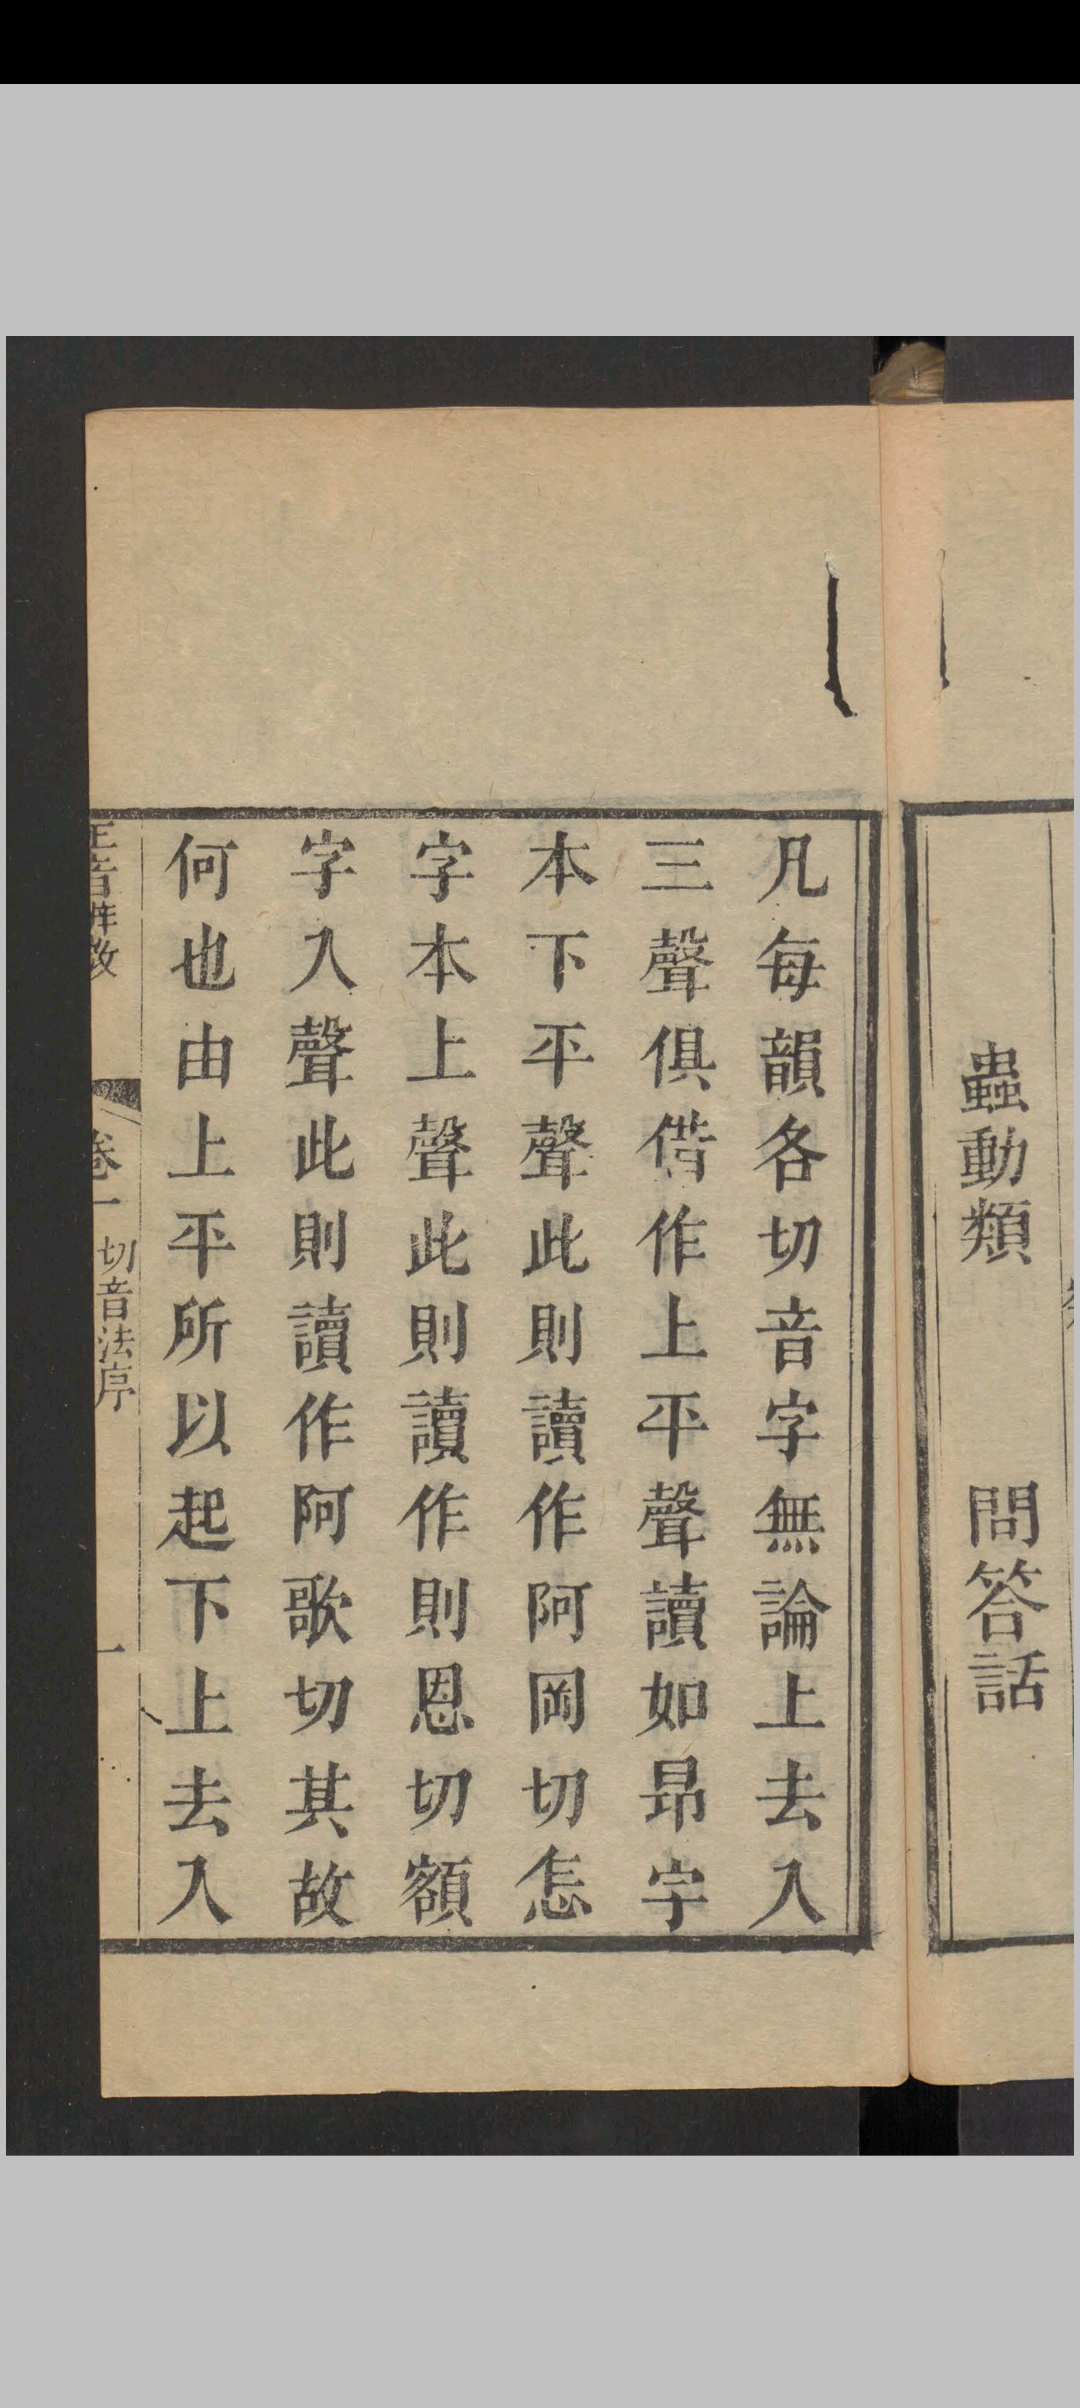 蟲動類 問答話
凡每韻各切音字無論上去入
三聲俱借作上平聲讀如昂字
本下平聲此則讀作阿岡切怎
字本上聲此則讀作則恩切額
字入聲此則讀作阿歌切其故
何也由上平所以起下上去入
正音 卷一 切音法序 一